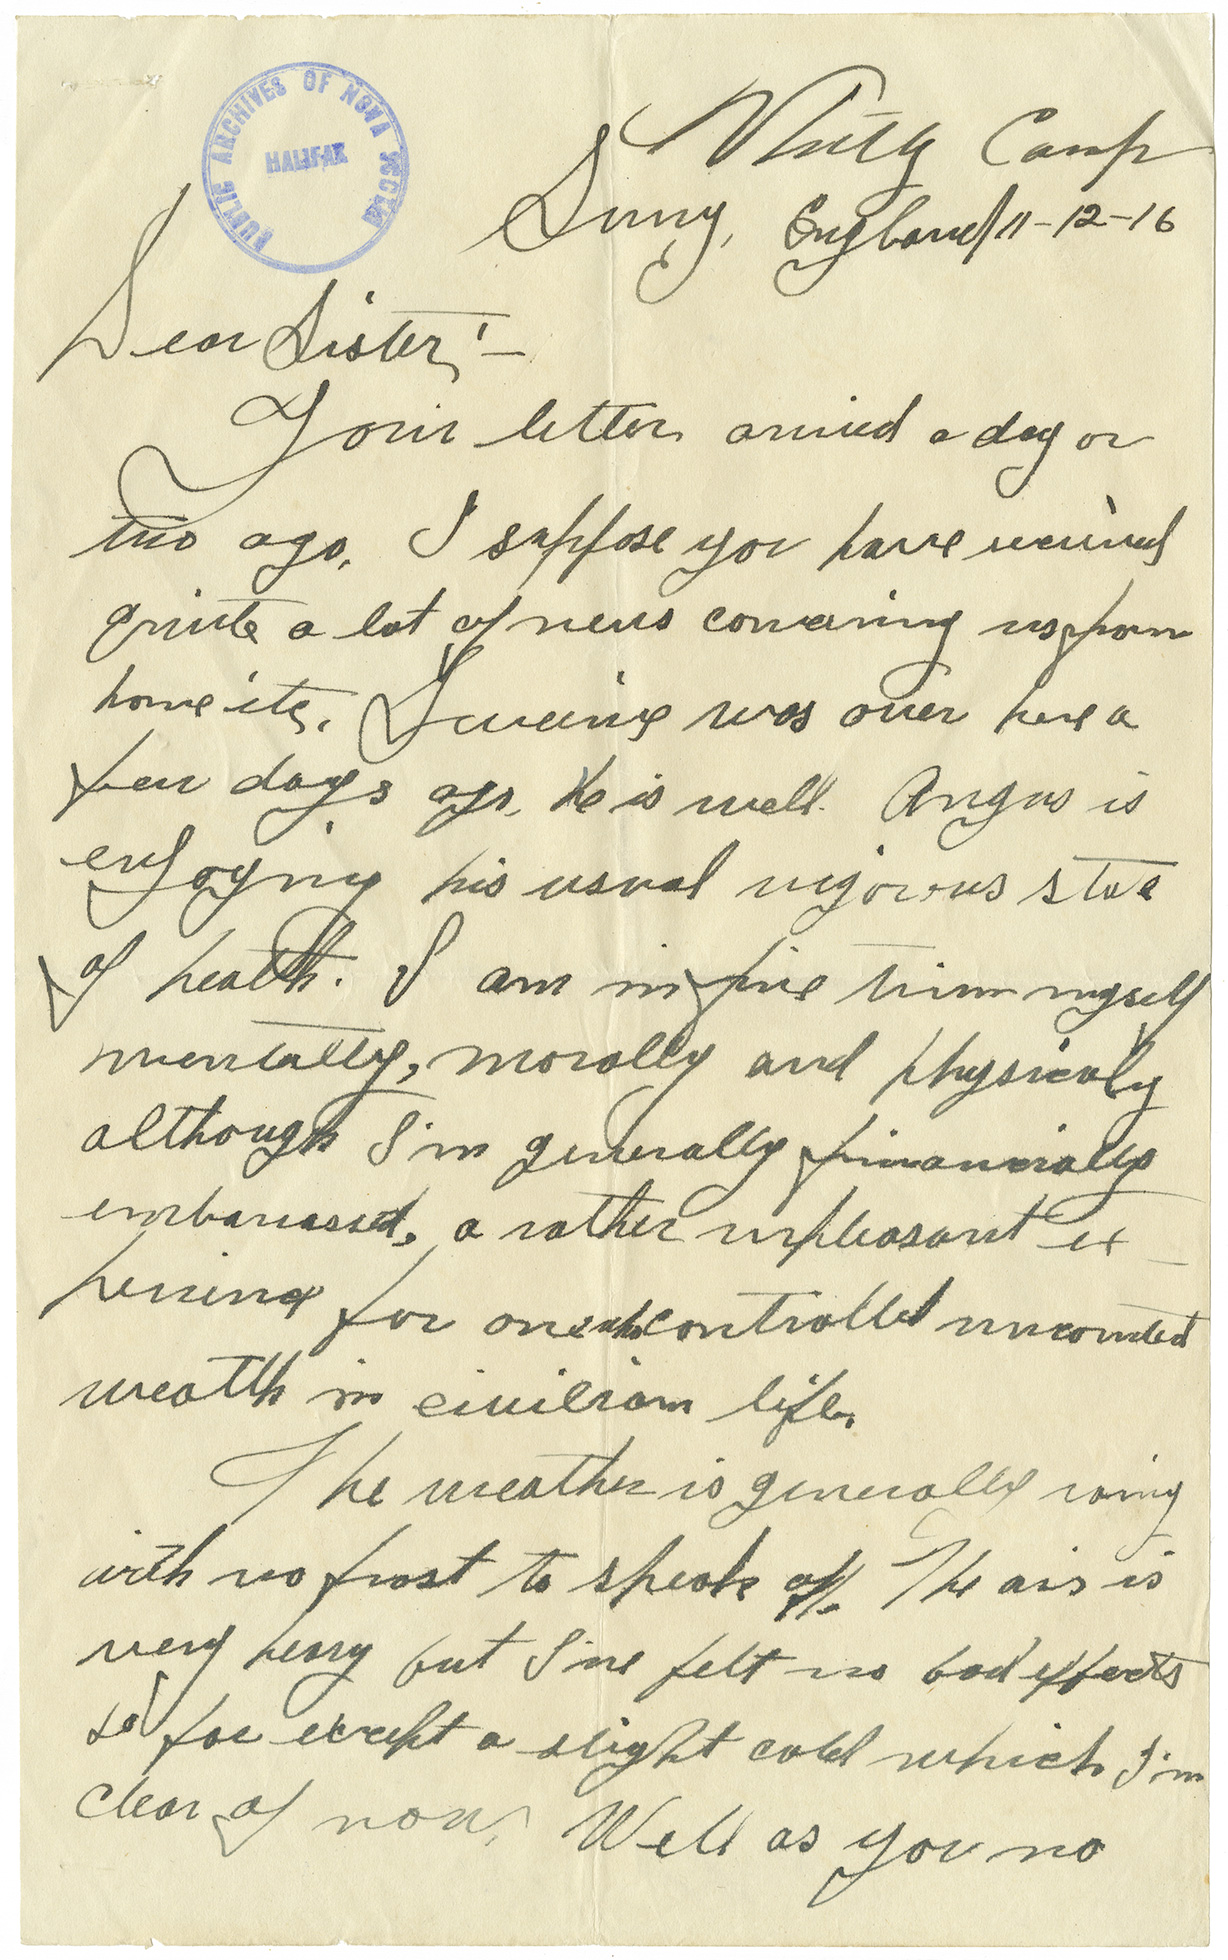 PUBLIC ARCHIVES OF NOVA SCOTIA
HALIFAX
Witley Camp
Surrey, England 11-12-16
Dear Sister,:—
Your letter arrived a day or
two ago. I suppose you have received
quite a lot of news concerning us from
home etc. Dwaine was over here a
few days ago. He is well. Angus is
enjoying his usual vigorous state
of health. I am in fine trim myself
mentally, morally and physicaly
although I'm generally financially
embarrassed, a rather unpleasant ex-
perience for one who controlled uncounted
wealth in civilian life.
The weather is generally rainy
with no frost to speak of. The air is
very heavy but I've felt no bad effects
so far except a slight cold which I'm
clear of now. Well as you no